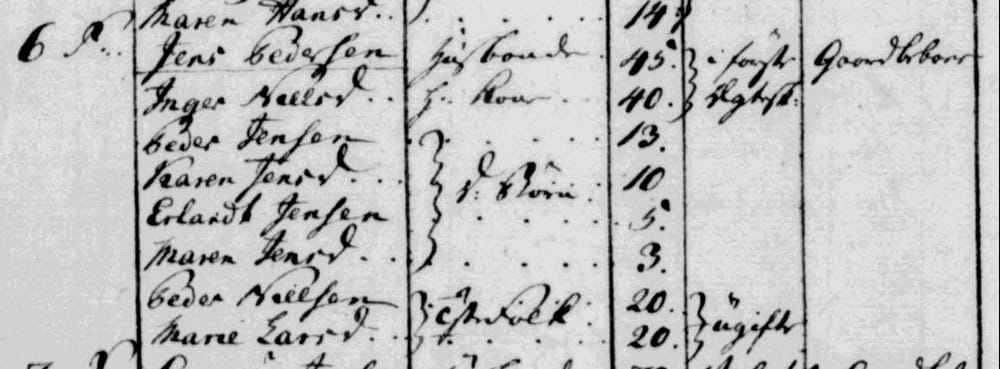 Maren Hansd. . 14.
6 Jens Pedersen Husbonde 45. i förste Gaardbeboer
Inger Nielsd. . H. Kone 40. Egtesk.
Peder Jensen 13.
Karen Jensd. . . D. Börn 10
Erlandt Jensen 5.
Maren Jensd. . . 3.
Peder Nielsen Folk 20. ugifte
Marie Larsd. 20.